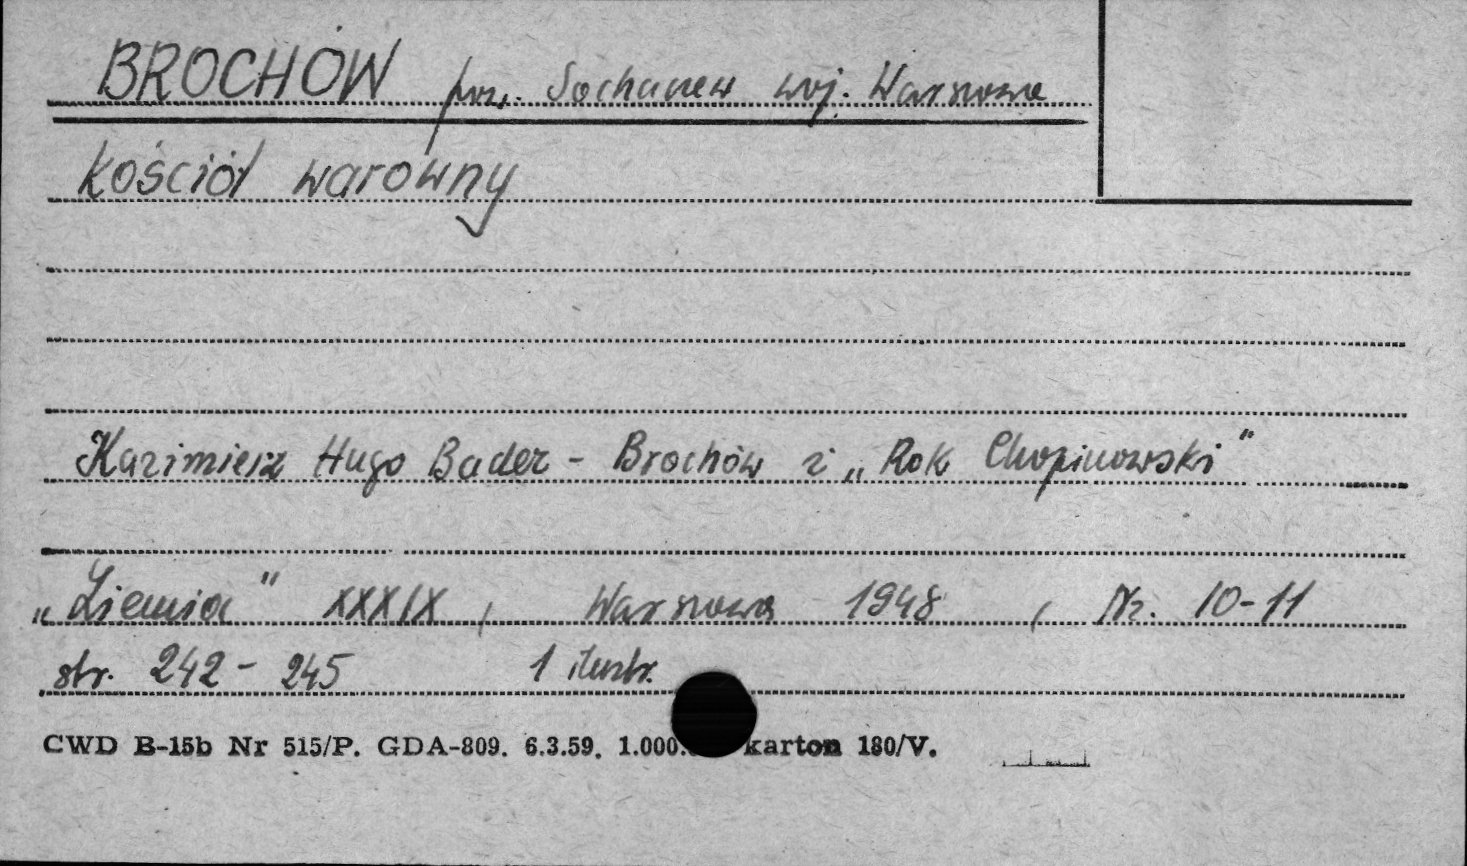 BROCHÓW pow. Sochaczew woj. Warszawa
Kościół warówny
Kazimierz Hugo Bader - Brochów i „Rok Chopinowski"
„Ziemia" XXXIX, Warszawa 1948, Nr. 10-11
str. 242 - 245 1 ilustr.
CWD B-15b Nr 515/P. GDA-809. 6.3.59. 1.000. karton 180/V.